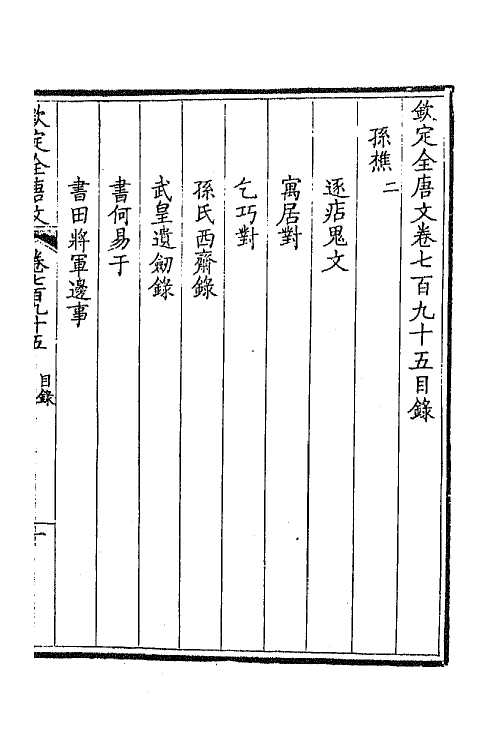 欽定全唐文卷七百九十五目錄
孫樵二
逐痁鬼文
寓居對
乞巧對
孫氏西齋錄
武皇遺劒錄
書何易于
書田將軍邊事
欽定全唐文 卷七百九十五 目錄 一